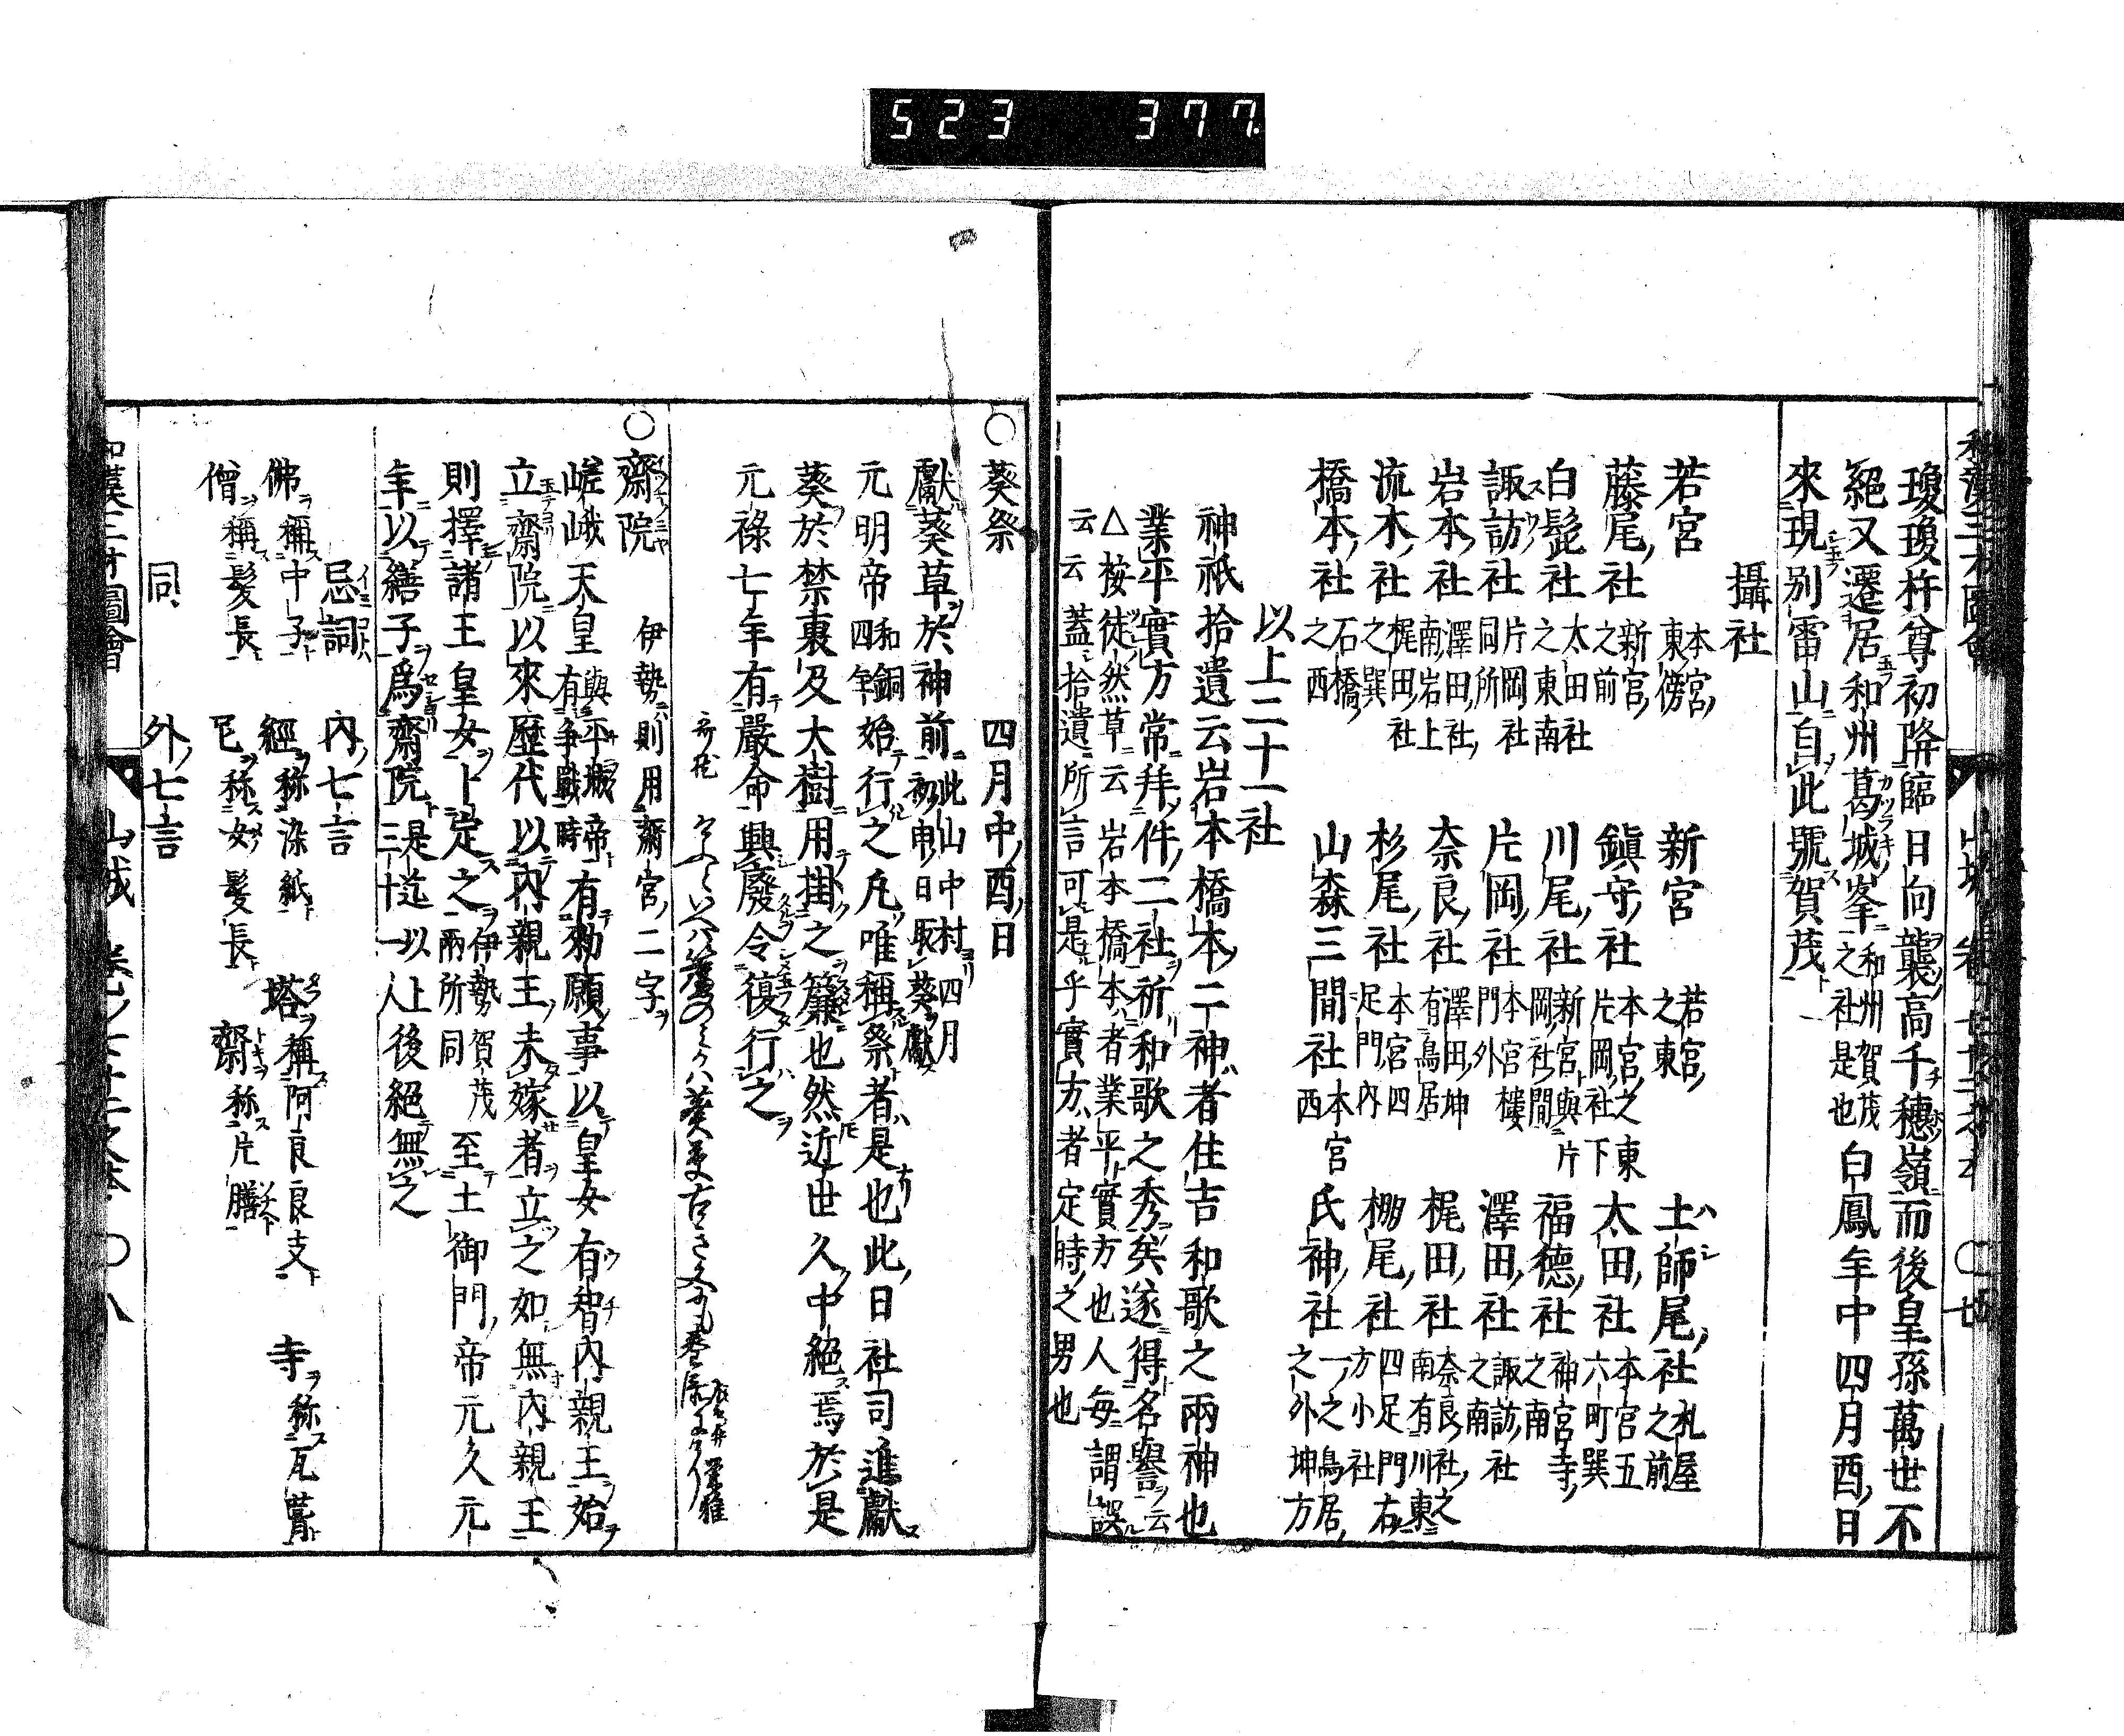 523 377
瓊瓊杵尊初降臨日向襲高千穗嶺而後皇孫萬世不
絕又遷居和州葛城峯和州賀茂之社是也白鳳年中四月酉日
來現別雷山自此號賀茂
攝社
若宮 本宮東傍 新宮 若宮之東 土師尾社 札屋之前
藤尾社 新宮之前 鎮守社 本宮之東片岡社下 太田社 本宮五六町巽
白髭社 太田社之東南 川尾社 新宮與片岡社間 福德社 神宮寺之南
諏訪社 片岡社同所 片岡社 本宮樓門外 澤田社 諏訪社之南
岩本社 澤田社南岩上 奈良社 澤田坤有鳥居 梶田社 奈良社之南有川東
流木社 梶田社之巽 杉尾社 本宮四足門內 棚尾社 四足門右方小社
橋本社 石橋之西 山森三間社 本宮西 氏神社 一之鳥居之外坤方
以上二十一社
神祇拾遺云岩本橋本二神者住吉和歌之兩神也
業平實方常拜件二社祈和歌之秀矣遂得名譽云云
△按徒然草云岩本橋本者業平實方也人每謂誤
云蓋拾遺所言可是乎實方者定時之男也
○葵祭 四月中酉日
獻葵草於神前 此山中村四月初申日取葵獻
元明帝 和銅四年 始行之凡唯稱祭者是也此日社司進獻
葵於禁裏及大樹用掛之簾也然近世久中絕焉於是
元祿七年有嚴命興廢令復行之
○齋院 伊勢則用齋宮二字
嵯峨天皇 與平城帝有爭戰時 有勅願事以皇女有智內親王始
立齋院以來歷代以內親王未嫁者立之如無內親王
則擇諸王皇女卜定之 伊勢賀茂兩所同 至土御門帝元久元
年以繕子爲齋院 是迄以上三十一人 後絕無之
忌詞 內七言
佛稱中子 經称染紙 塔稱阿良良支 寺称瓦葺
僧稱髮長 尼称女髮長 齋称片膳
同 外七言
和漢三才圖會 山城 卷ノ七十二之本 ○八